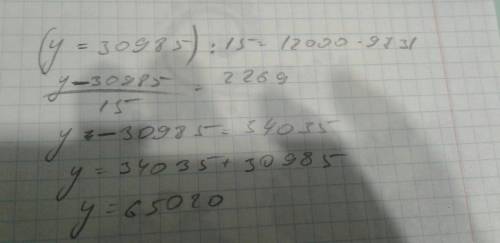 (y = 30985) : 15 = 12000 - 9731
y - 30985 / 15 = 2269
y = - 30985 = 34035
y = 34035 + 30985
y = 65020